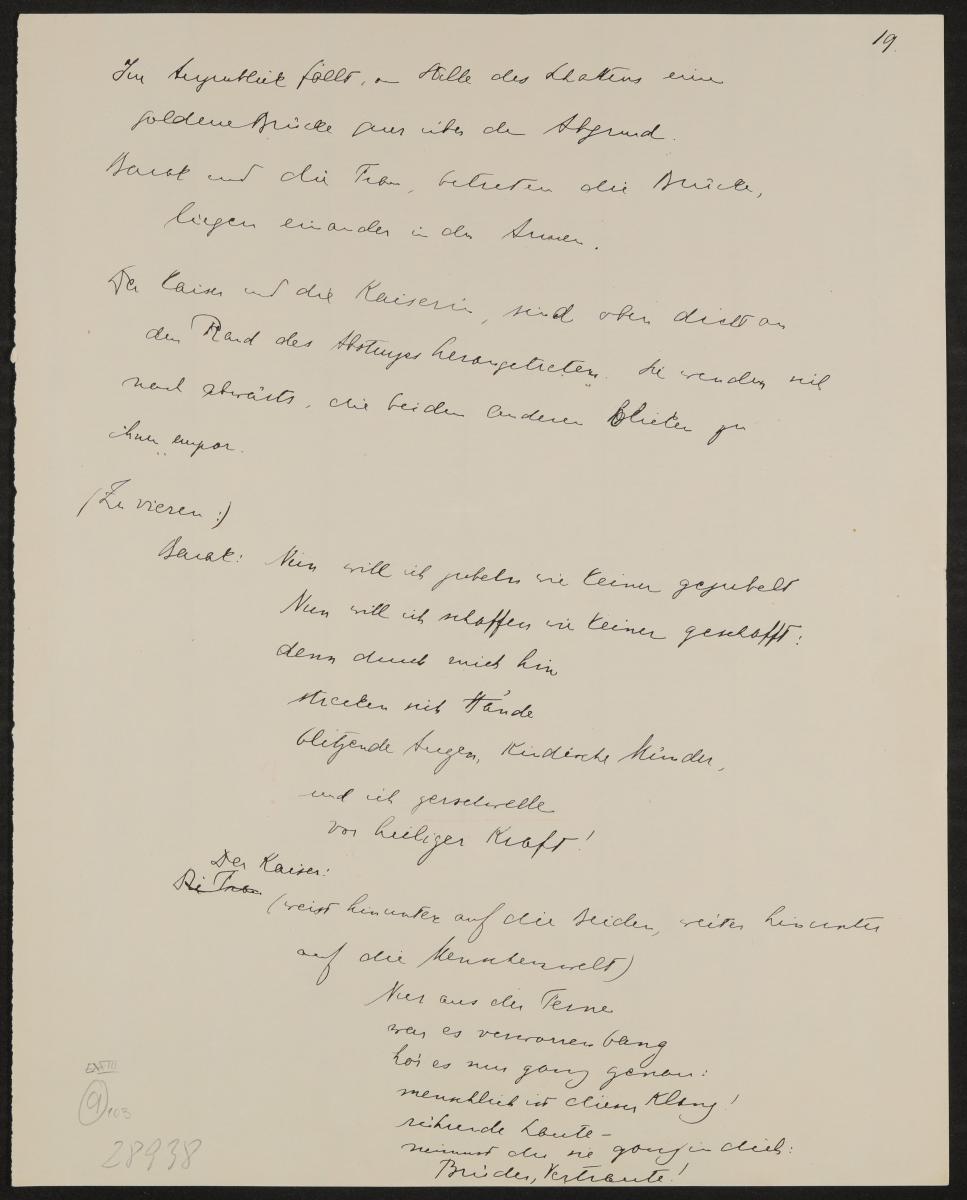 19.
Im Augenblick fällt, an Stelle des Schattens eine
goldene Brücke quer über den Abgrund.
Barak und die Frau, betreten die Brücke,
liegen einander in den Armen.
Der Kaiser und die Kaiserin, sind oben dicht an
den Rand des Absturzes herangetreten. Sie wenden sich
nach abwärts, die beiden anderen blicken zu
ihnen empor.
(Zu vieren:)
Barak: Nun will ich jubeln wie keiner gejubelt
Nun will ich schaffen wie keiner geschafft:
denn durch mich hin
strecken sich Hände
blitzende Augen, kindische Münder,
und ich zerschwelle
vor heiliger Kraft!
Der Kaiser:
Die Frau
(weist hinunter auf die Beiden, weiter hinunter
auf die Menschenwelt)
Nur aus der Ferne
war es verworren bang
hör es nun ganz genau:
menschlich ist dieser Klang!
rührende Laute –
nimmst du sie ganz in dich:
Brüder, Vertraute!
9
103
28938